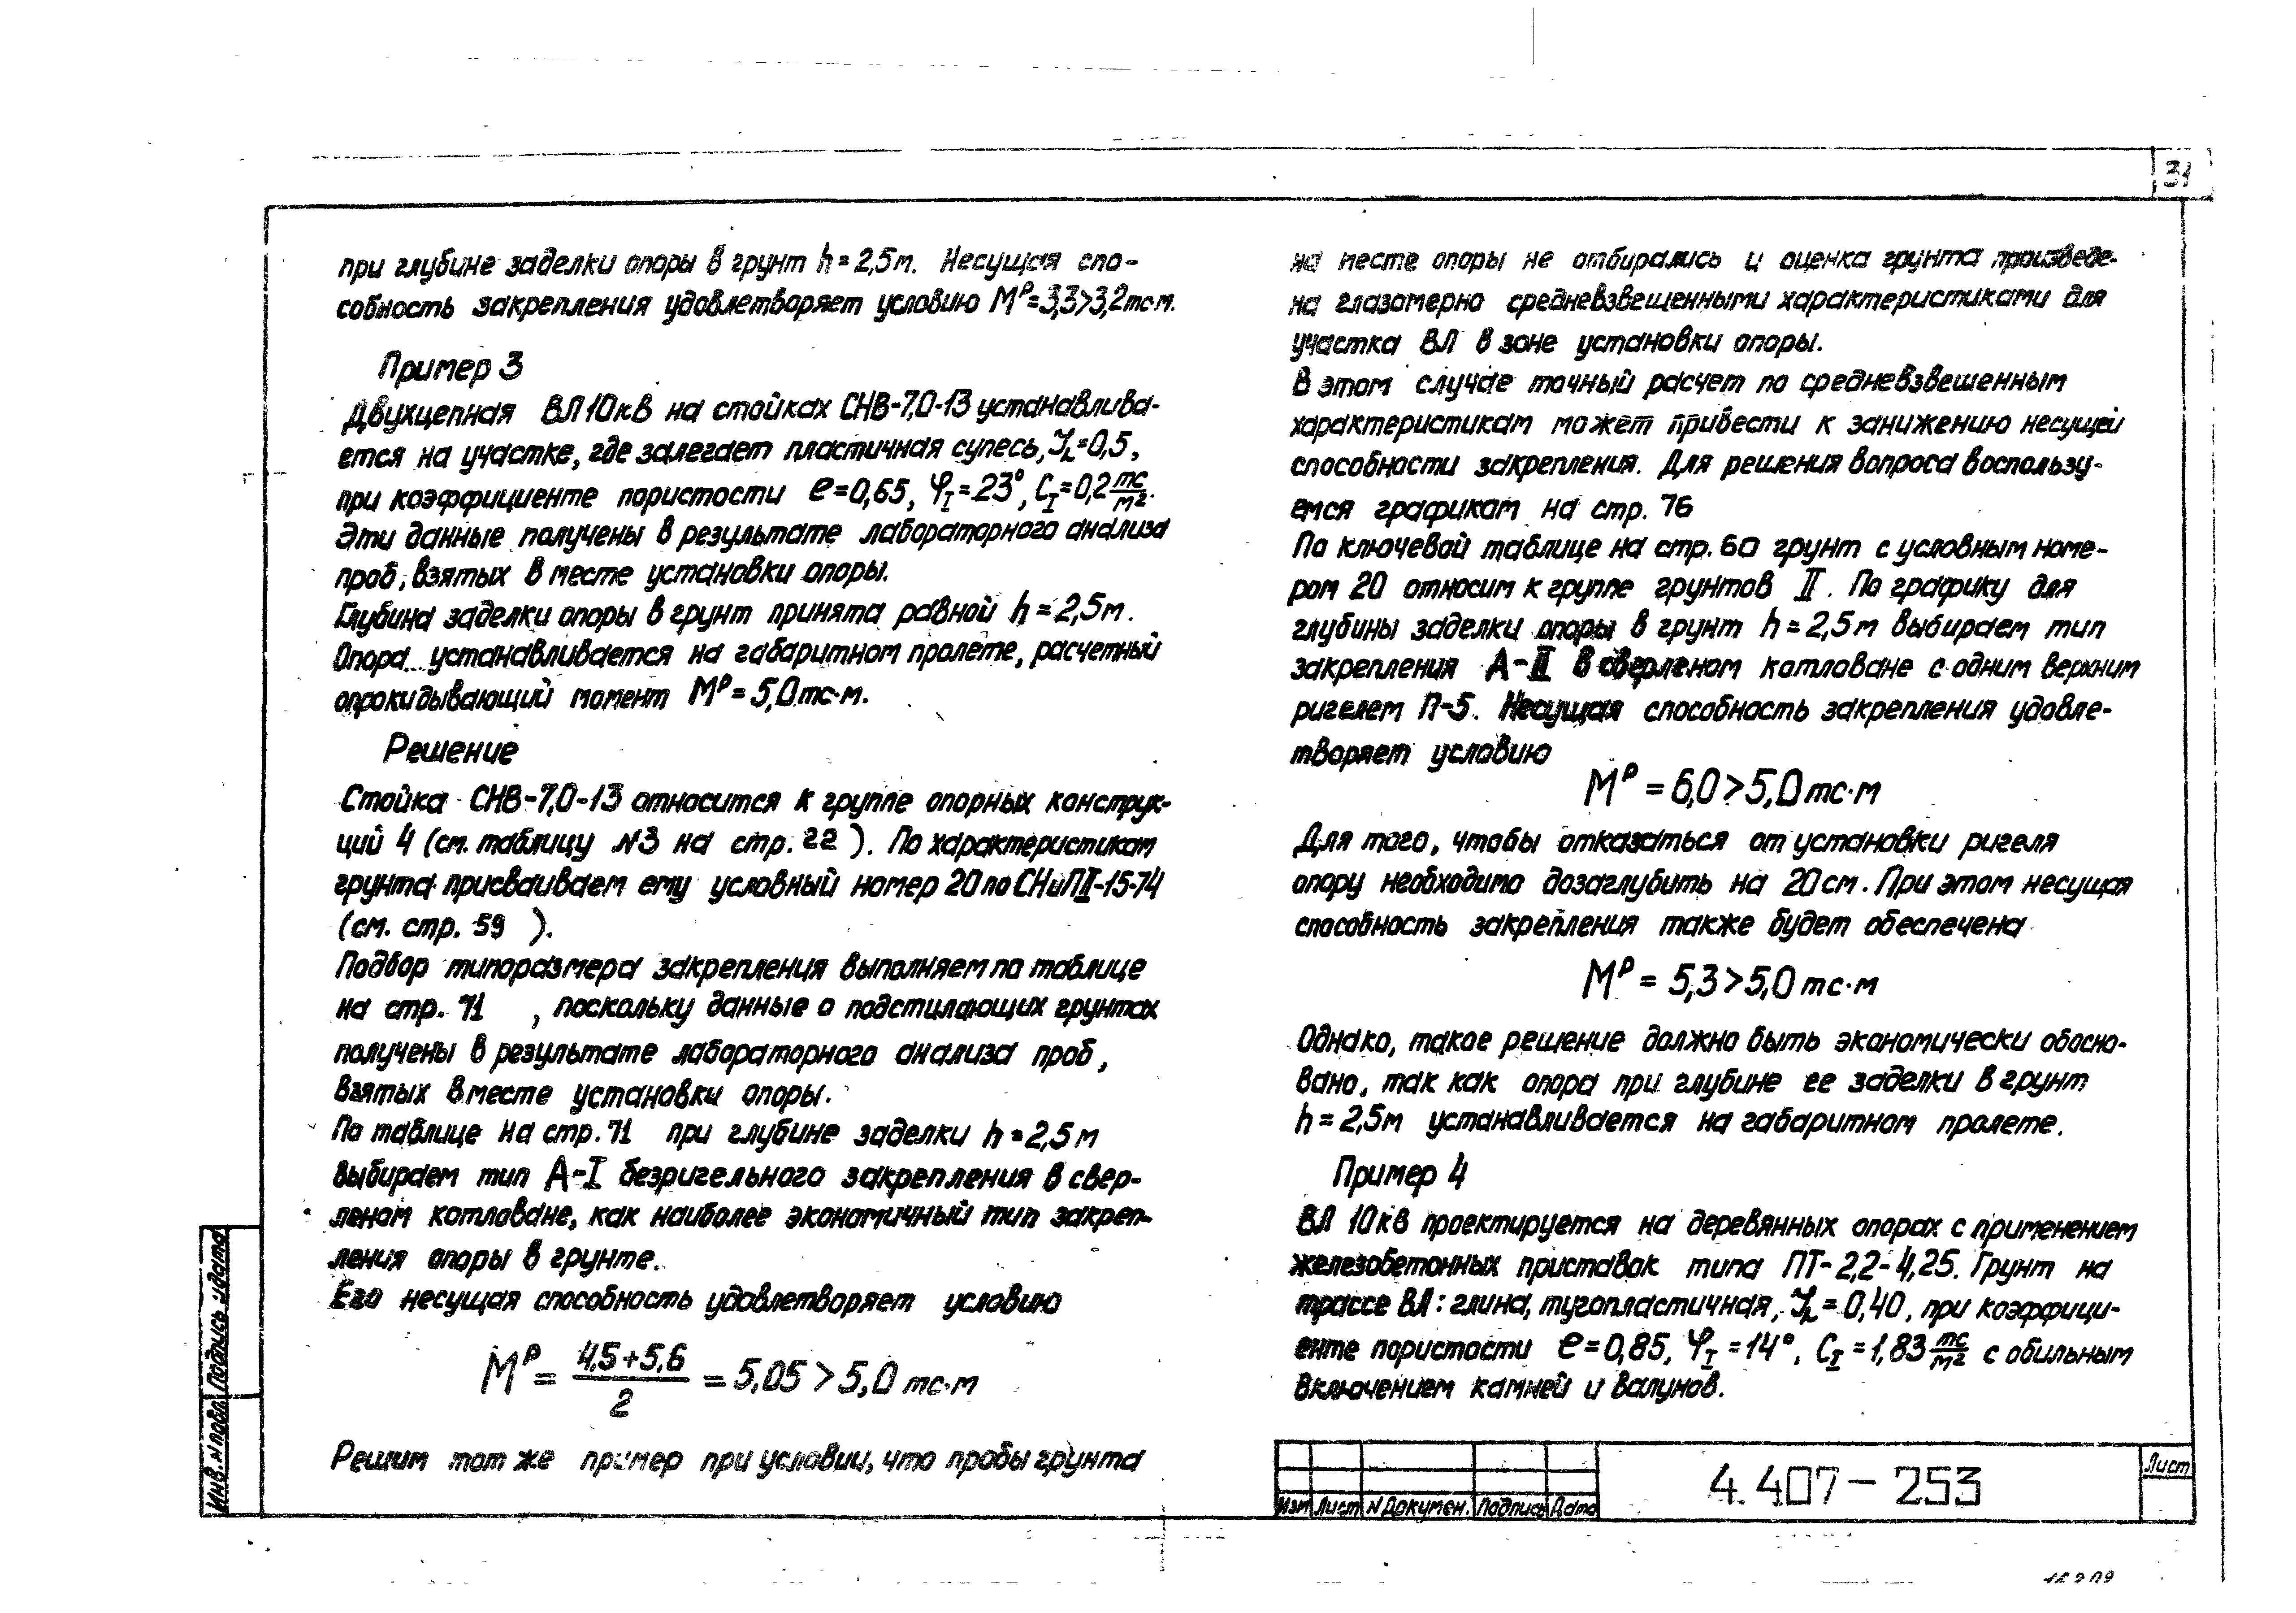 31
при глубине заделки опоры в грунт h = 2,5м. Несущая спо-
собность закрепления удовлетворяет условию Mᵖ=3,3>3,2тс·м.
Пример 3
Двухцепная ВЛ 10кВ на стойках СНВ-7,0-13 устанавлива-
ется на участке, где залегает пластичная супесь, J_L=0,5,
при коэффициенте пористости e=0,65, φ_I=23°, C_I=0,2 тс/м².
Эти данные получены в результате лабораторного анализа
проб, взятых в месте установки опоры.
Глубина заделки опоры в грунт принята равной h = 2,5м.
Опора устанавливается на габаритном пролете, расчетный
опрокидывающий момент Mᵖ = 5,0тс·м.
Решение
Стойка СНВ-7,0-13 относится к группе опорных конструк-
ций 4 (см. таблицу N3 на стр. 22 ). По характеристикам
грунта присваиваем ему условный номер 20 по СНиП II-15-74
(см. стр. 59 ).
Подбор типоразмера закрепления выполняем по таблице
на стр. 71 , поскольку данные о подстилающих грунтах
получены в результате лабораторного анализа проб,
взятых в месте установки опоры.
По таблице на стр. 71 при глубине заделки h = 2,5м
выбираем тип А-I безригельного закрепления в свер-
леном котловане, как наиболее экономичный тип закреп-
ления опоры в грунте.
Его несущая способность удовлетворяет условию
Mᵖ = (4,5+5,6)/2 = 5,05 > 5,0 тс·м
Решим тот же пример при условии, что пробы грунта
на месте опоры не отбирались и оценка грунта произведе-
на глазомерно средневзвешенными характеристиками для
участка ВЛ в зоне установки опоры.
В этом случае точный расчет по средневзвешенным
характеристикам может привести к занижению несущей
способности закрепления. Для решения вопроса воспользу-
емся графикам на стр. 76
По ключевой таблице на стр. 60 грунт с условным номе-
ром 20 относим к группе грунтов II. По графику для
глубины заделки опоры в грунт h = 2,5м выбираем тип
закрепления А-II в сверленом котловане с одним верхним
ригелем П-5. Несущая способность закрепления удовле-
творяет условию
Mᵖ = 6,0 > 5,0 тс·м
Для того, чтобы отказаться от установки ригеля
опору необходимо дозаглубить на 20 см. При этом несущая
способность закрепления также будет обеспечена
Mᵖ = 5,3 > 5,0 тс·м
Однако, такое решение должно быть экономически обосно-
вано, так как опора при глубине ее заделки в грунт
h = 2,5м устанавливается на габаритном пролете.
Пример 4
ВЛ 10кВ проектируется на деревянных опорах с применением
железобетонных приставок типа ПТ-2,2-4,25. Грунт на
трассе ВЛ: глина, тугопластичная, J_L = 0,40, при коэффици-
енте пористости e=0,85, φ_I=14°, C_I=1,83 тс/м² с обильным
включением камней и валунов.
Инв. N подл. Подпись и дата
Изм Лист N Докумен. Подпись Дата
4.407-253
Лист